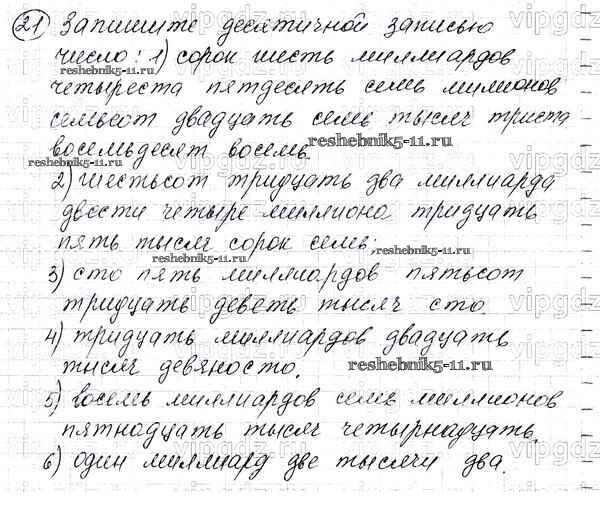 21 Запишите десятичной записью
число: 1) сорок шесть миллиардов
reshebnik5-11.ru
четыреста пятдесять семь милионов
семьсот двадцать семь тысяч триста
восемьдесят восемь.
reshebnik5-11.ru
reshebnik5-11.ru
2) шестьсот тридцать два миллиарда
двести четыре миллиона тридцать
пять тысяч сорок семь;
reshebnik5-11.ru
3) сто пять миллиардов пятьсот
тридцать деветь тысяч сто.
4) тридцать миллиардов двадцать
тысяч девяносто.
reshebnik5-11.ru
5) восемь миллиардов семь миллионов
пятнадцать тысяч четырнадцать.
6) один миллиард две тысячи два.
vipgdz.ru